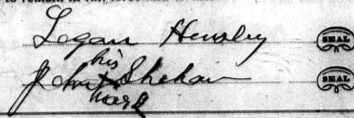 Logan Hensley SEAL
his
John x Shehan SEAL
mark